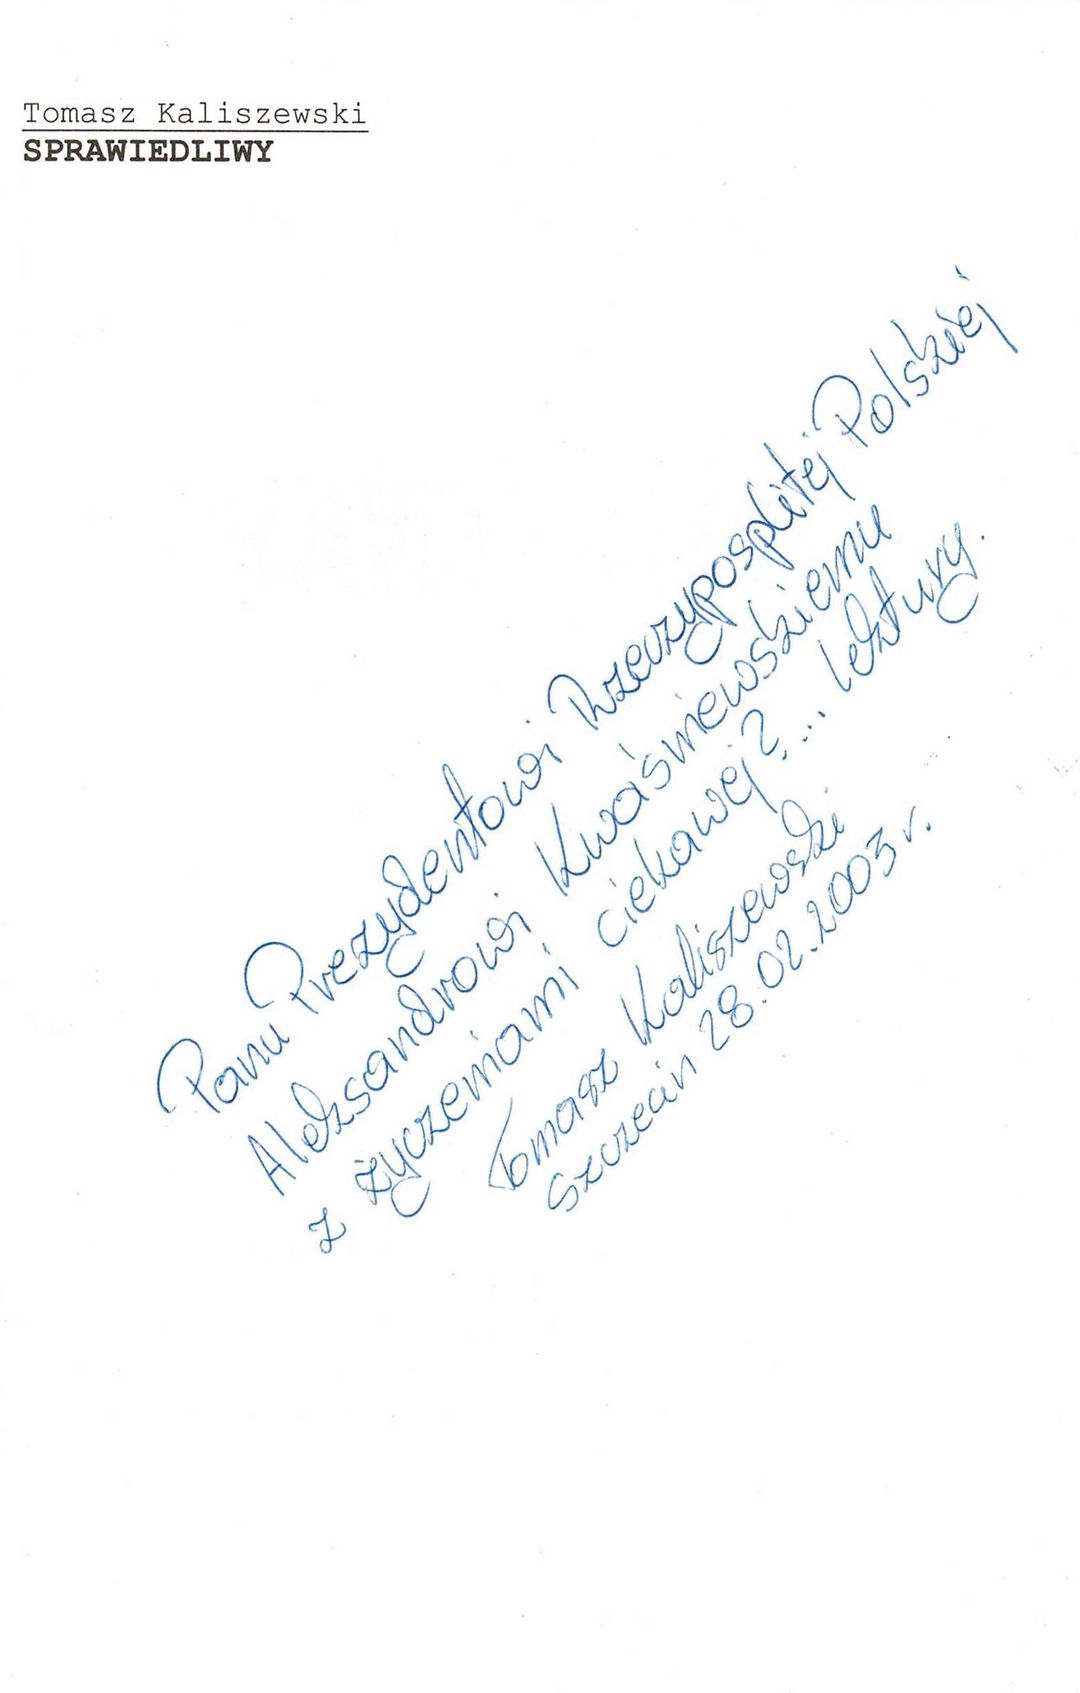 Tomasz Kaliszewski
SPRAWIEDLIWY
Panu Prezydentowi Rzeczypospolitej Polskiej
Aleksandrowi Kwaśniewskiemu
z życzeniami ciekawej?... lektury.
Tomasz Kaliszewski
Szczecin 28.02.2003 r.